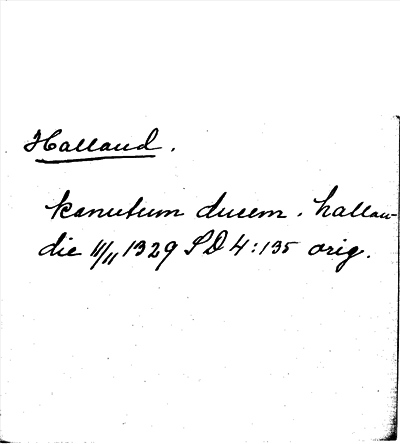 Halland.
kanutum ducem . hallan-
die 11/11 1329 SD 4:135 orig.